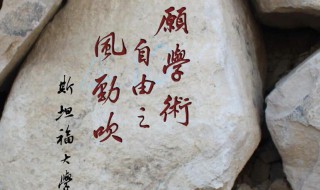 願學術
自由之
風勁吹
斯坦福大學